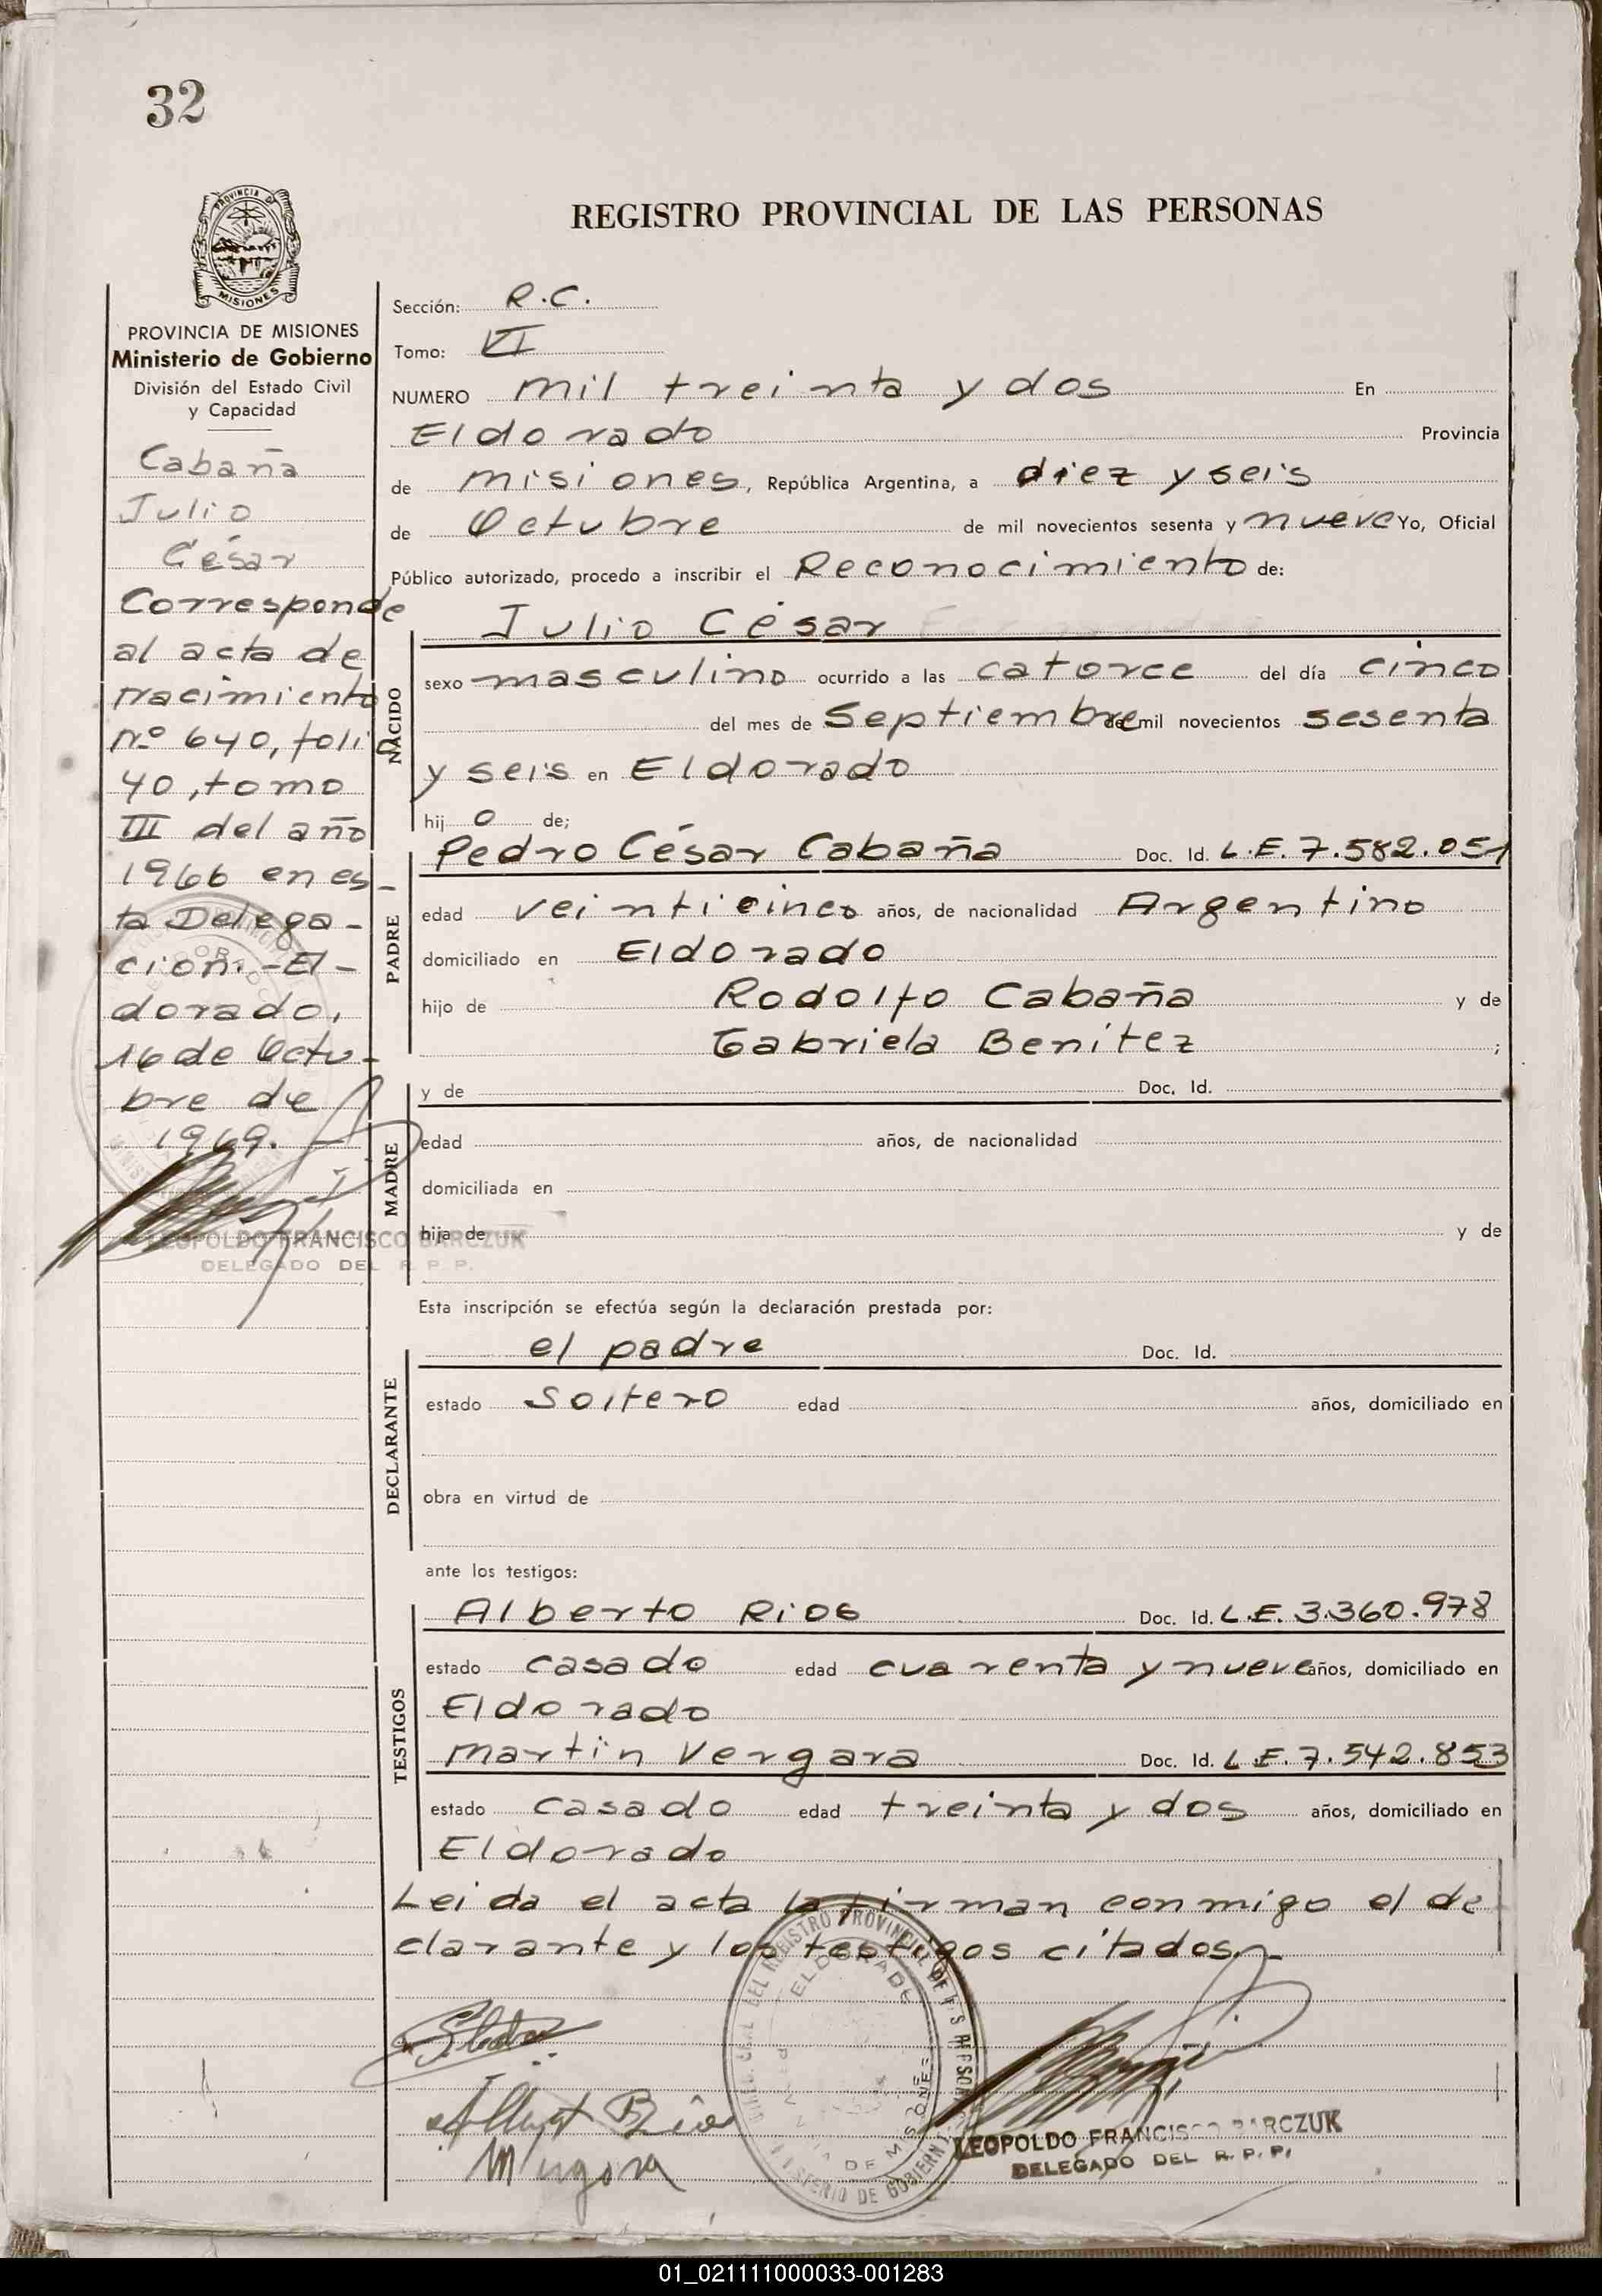 32
PROVINCIA DE
MISIONES
REGISTRO PROVINCIAL DE LAS PERSONAS
PROVINCIA DE MISIONES
Ministerio de Gobierno
División del Estado Civil
y Capacidad
Cabaña
Julio
César
Corresponde
al acta de
nacimiento
nº 640, folio
40, tomo
III del año
1966 en es-
ta Delega-
ción.-El-
dorado,
16 de Octu-
bre de
1969.-
LEOPOLDO FRANCISCO BARCZUK
DELEGADO DEL R. P. P.
Sección: R.C.
Tomo: VI
NUMERO mil treinta y dos En
Eldorado Provincia
de misiones, República Argentina, a diez y seis
de Octubre de mil novecientos sesenta y nueve Yo, Oficial
Público autorizado, procedo a inscribir el Reconocimiento de:
Julio César
NACIDO
sexo masculino ocurrido a las catorce del día cinco
del mes de Septiembre de mil novecientos sesenta
y seis en Eldorado
hij o de;
Pedro César Cabaña Doc. Id. L.E. 7.582.051
PADRE
edad veinticinco años, de nacionalidad Argentino
domiciliado en Eldorado
hijo de Rodolfo Cabaña y de
Gabriela Benítez ;
y de Doc. Id.
MADRE
edad años, de nacionalidad
domiciliada en
hija de y de
Esta inscripción se efectúa según la declaración prestada por:
el padre Doc. Id.
DECLARANTE
estado Soltero edad años, domiciliado en
obra en virtud de
ante los testigos:
Alberto Rios Doc. Id. L.E. 3.360.978
TESTIGOS
estado casado edad cuarenta y nueve años, domiciliado en
Eldorado
martín Vergara Doc. Id. L.E. 7.542.853
estado casado edad treinta y dos años, domiciliado en
Eldorado
Leida el acta la firman conmigo el de
clarante y los testigos citados.-
DEL REGISTRO PROVINCIAL DE
ELDORADO
LEOPOLDO FRANCISCO BARCZUK
DELEGADO DEL R. P. P.
01_021111000033-001283